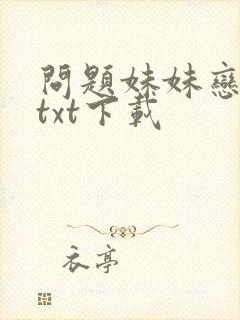 問題妹妹戀
txt下載
衣亭